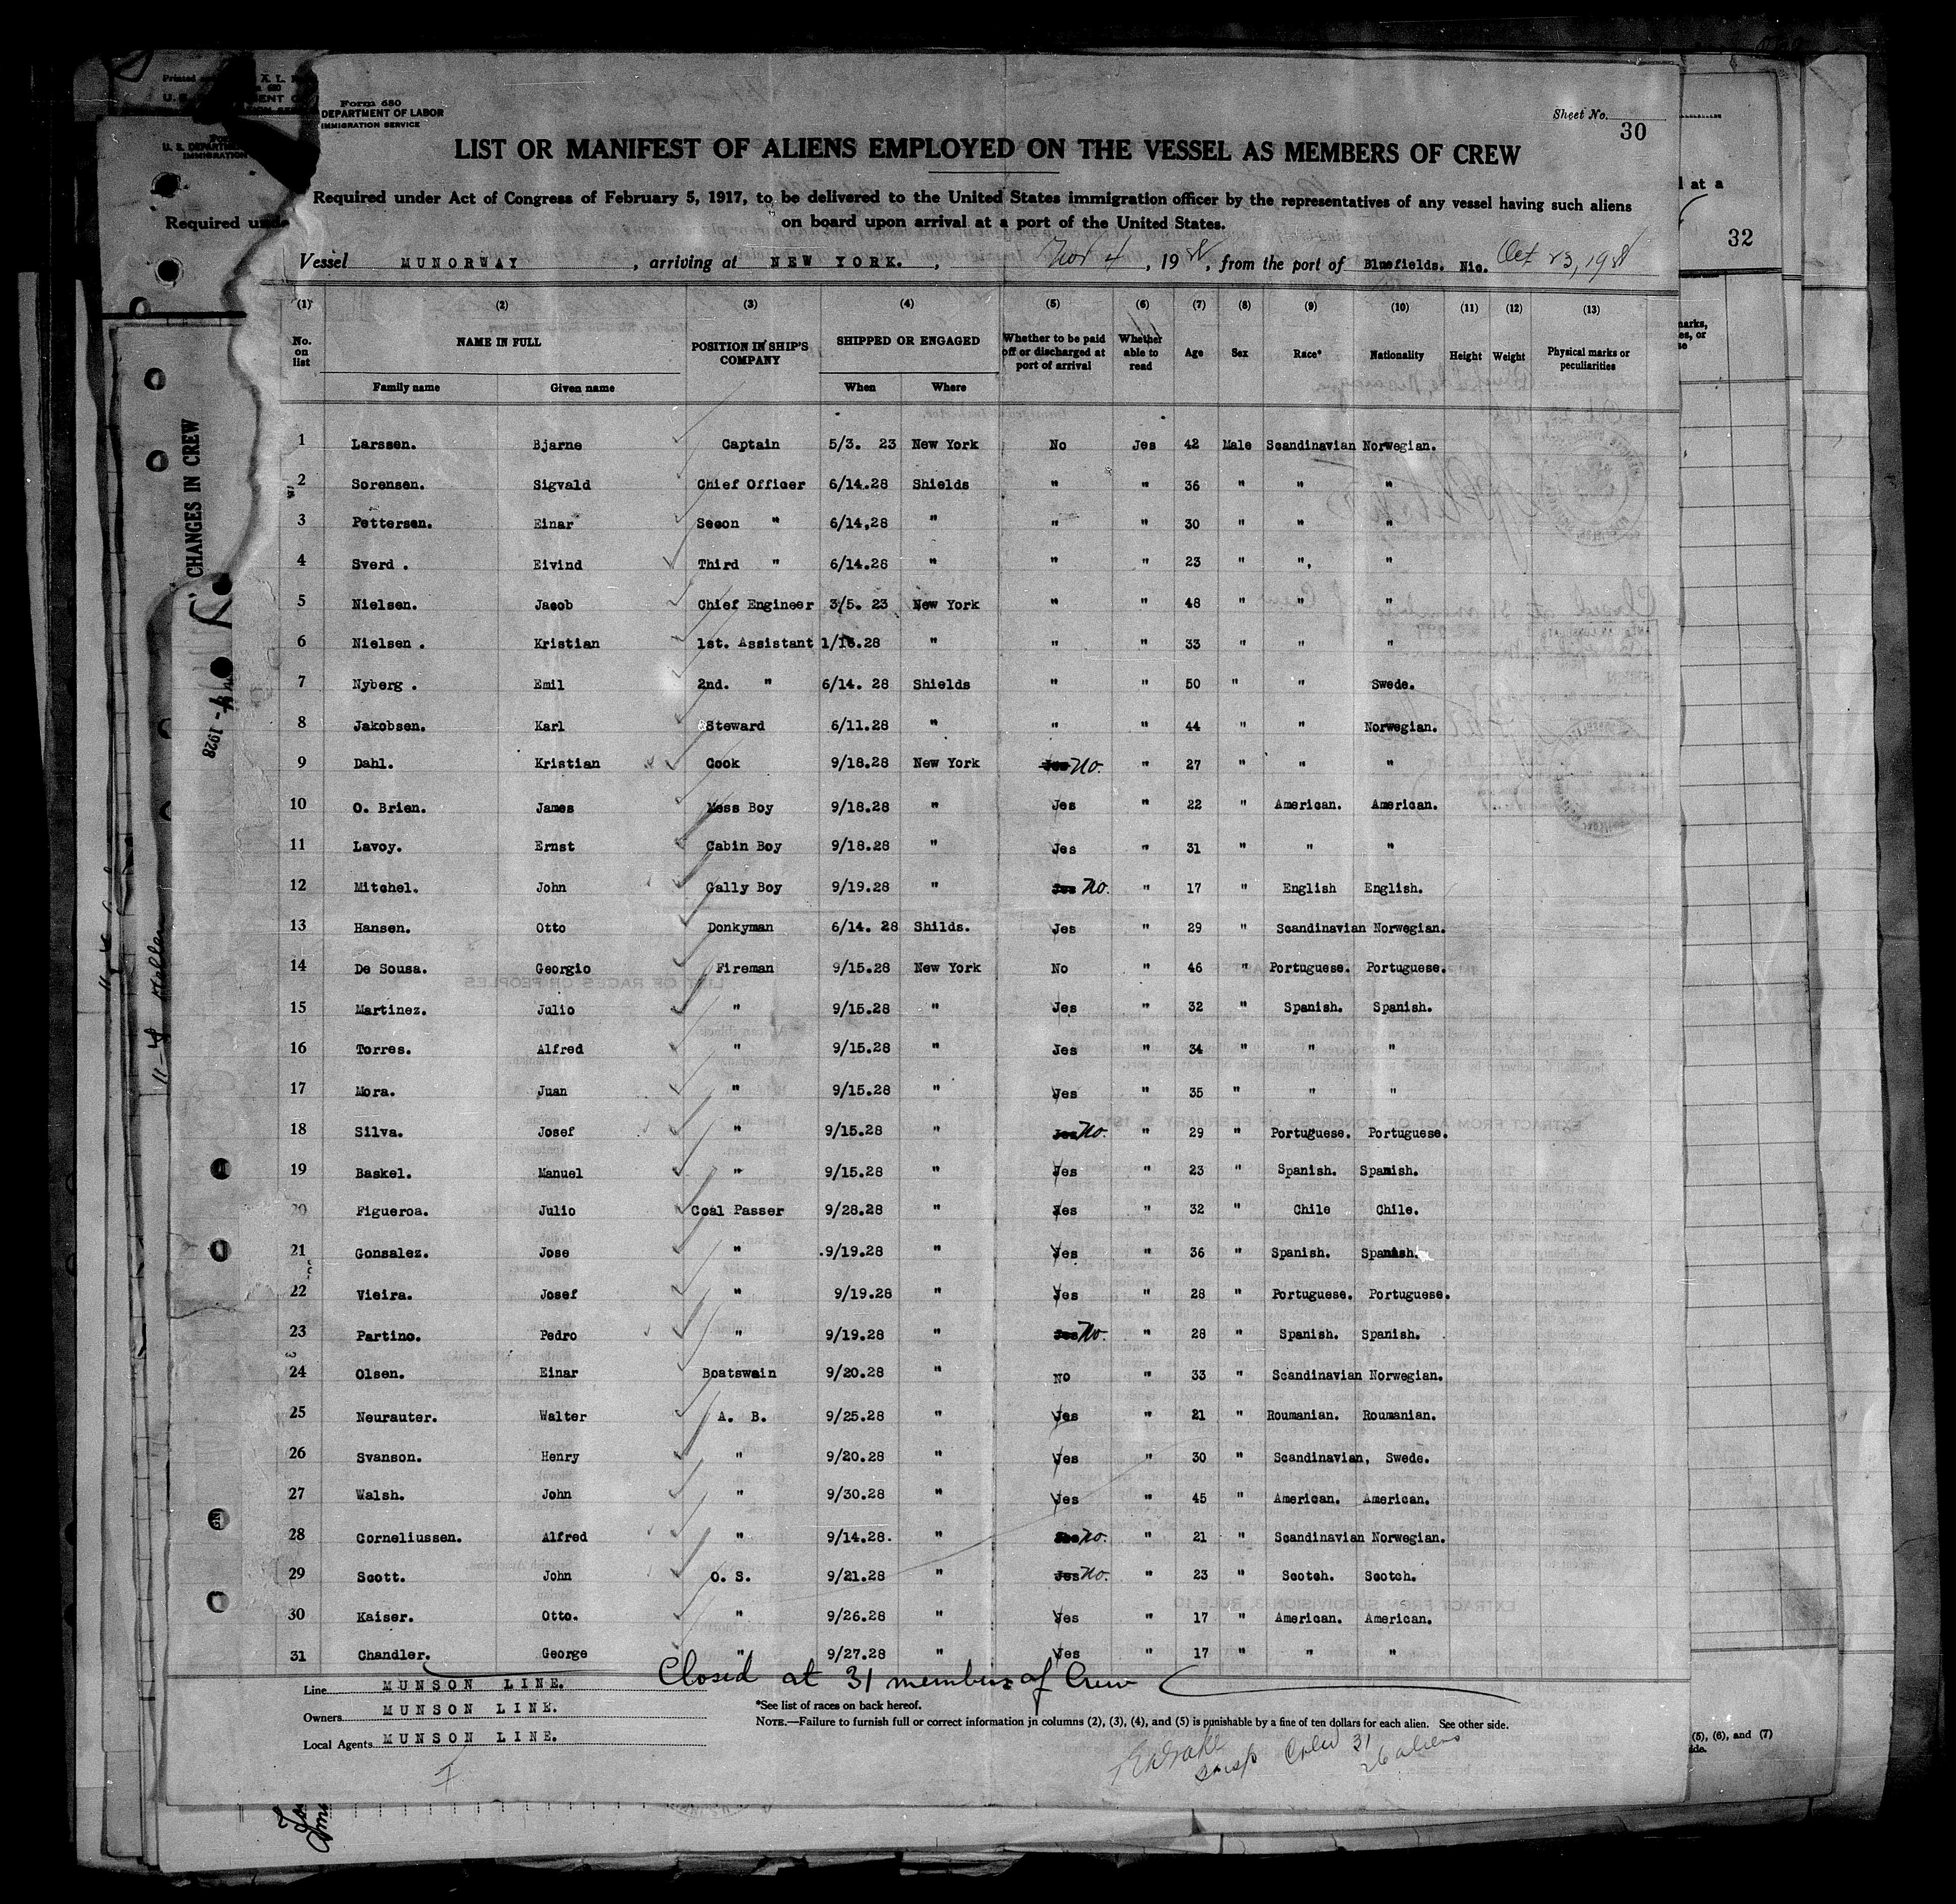 Form 680
DEPARTMENT OF LABOR
IMMIGRATION SERVICE
Sheet No.
30
LIST OR MANIFEST OF ALIENS EMPLOYED ON THE VESSEL AS MEMBERS OF CREW
Required under Act of Congress of February 5, 1917, to be delivered to the United States immigration officer by the representatives of any vessel having such aliens
on board upon arrival at a port of the United States.
Vessel MUNORWAY, arriving at NEW YORK., Nov 4, 1928, from the port of Bluefields. Nic. Oct 23, 1928
(1) (2) (3) (4) (5) (6) (7) (8) (9) (10) (11) (12) (13)
No. on list NAME IN FULL Family name Given name POSITION IN SHIP'S COMPANY SHIPPED OR ENGAGED When Where Whether to be paid off or discharged at port of arrival Whether able to read Age Sex Race* Nationality Height Weight Physical marks or peculiarities
1 Larssen. Bjarne Captain 5/3. 23 New York No Jes 42 Male Scandinavian Norwegian.
2 Sorensen. Sigvald Chief Officer 6/14.28 Shields " " 36 " " "
3 Pettersen. Einar Secon " 6/14,28 " " " 30 " " "
4 Sverd . Eivind Third " 6/14.28 " " " 23 " ", "
5 Nielsen. Jacob Chief Engineer 3/5. 23 New York " " 48 " " "
6 Nielsen . Kristian 1st. Assistant 1/16.28 " " " 33 " " "
7 Nyberg . Emil 2nd. " 6/14. 28 Shields " " 50 " " Swede.
8 Jakobsen. Karl Steward 6/11.28 " " " 44 " " Norwegian.
9 Dahl. Kristian Cook 9/18.28 New York no. " 27 " " "
10 O. Brien. James Mess Boy 9/18.28 " Jes " 22 " American. American.
11 Lavoy. Ernst Cabin Boy 9/18.28 " Jes " 31 " " "
12 Mitchel. John Gally Boy 9/19.28 " no. " 17 " English English.
13 Hansen. Otto Donkyman 6/14. 28 Shilds. Jes " 29 " Scandinavian Norwegian.
14 De Sousa. Georgio Fireman 9/15.28 New York No " 46 " Portuguese. Portuguese.
15 Martinez. Julio " 9/15.28 " Jes " 32 " Spanish. Spanish.
16 Torres. Alfred " 9/15.28 " Jes " 34 " " "
17 Mora. Juan " 9/15.28 " Jes " 35 " " "
18 Silva. Josef " 9/15.28 " Jes no. " 29 " Portuguese. Portuguese.
19 Baskel. Manuel " 9/15.28 " Jes " 23 " Spanish. Spanish.
20 Figueroa. Julio Coal Passer 9/28.28 " Jes " 32 " Chile Chile.
21 Gonsalez. Jose " .9/19.28 " Jes " 36 " Spanish. Spanish.
22 Vieira. Josef " 9/19.28 " Jes " 28 " Portuguese. Portuguese.
23 Partino. Pedro " 9/19.28 " Jes no. " 28 " Spanish. Spanish.
24 Olsen. Einar Boatswain 9/20.28 " No " 33 " Scandinavian Norwegian.
25 Neurauter. Walter A. B. 9/25.28 " Jes " 21 " Roumanian. Roumanian.
26 Svanson. Henry " 9/20.28 " Jes " 30 " Scandinavian, Swede.
27 Walsh. John " 9/30.28 " Jes " 45 " American. American.
28 Corneliussen. Alfred " 9/14.28. " no. " 21 " Scandinavian Norwegian.
29 Scott. John O. S. 9/21.28 " Jes no. " 23 " Scotch. Scotch.
30 Kaiser. Otto. " 9/26.28 " Jes " 17 " American. American.
31 Chandler. George " 9/27.28 " Jes " 17 " " "
Closed at 31 members of Crew
Line MUNSON LINE.
Owners MUNSON LINE.
Local Agents MUNSON LINE.
*See list of races on back hereof.
NOTE.—Failure to furnish full or correct information in columns (2), (3), (4), and (5) is punishable by a fine of ten dollars for each alien. See other side.
Insp Crew 31
26 aliens
CHANGES IN CREW
4 - 1928
Required unde
32
l at a
(5), (6), and (7)